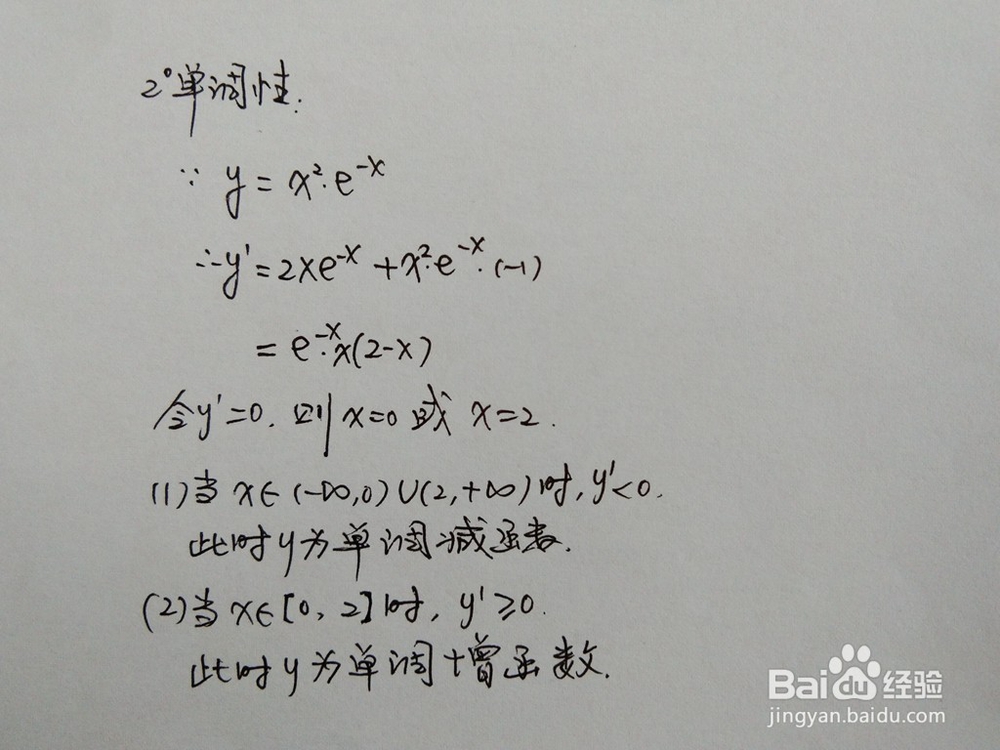 2°单调性.
∵ y = x²·e^{-x}
∴ y' = 2xe^{-x} + x²·e^{-x}·(-1)
= e^{-x}·x(2-x)
令y'=0, 则 x=0 或 x=2.
(1)当 x∈(-∞,0)∪(2,+∞)时, y'<0.
此时y为单调减函数.
(2)当 x∈[0, 2]时, y'≥0.
此时y为单调增函数.
Baidu经验
jingyan.baidu.com